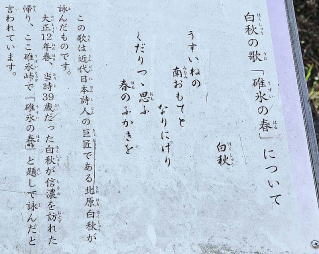 白秋の歌「碓氷の春」について
白秋
うすいねの
南おもてと
なりにけり
くだりつゝ思ふ
春のふかきを
この歌は近代日本詩人の巨匠である北原白秋が
詠んだものです。
大正12年春、当時39歳だった白秋が信濃を訪れた
帰り、ここ碓氷峠で「碓氷の春」と題して詠んだと
言われています。